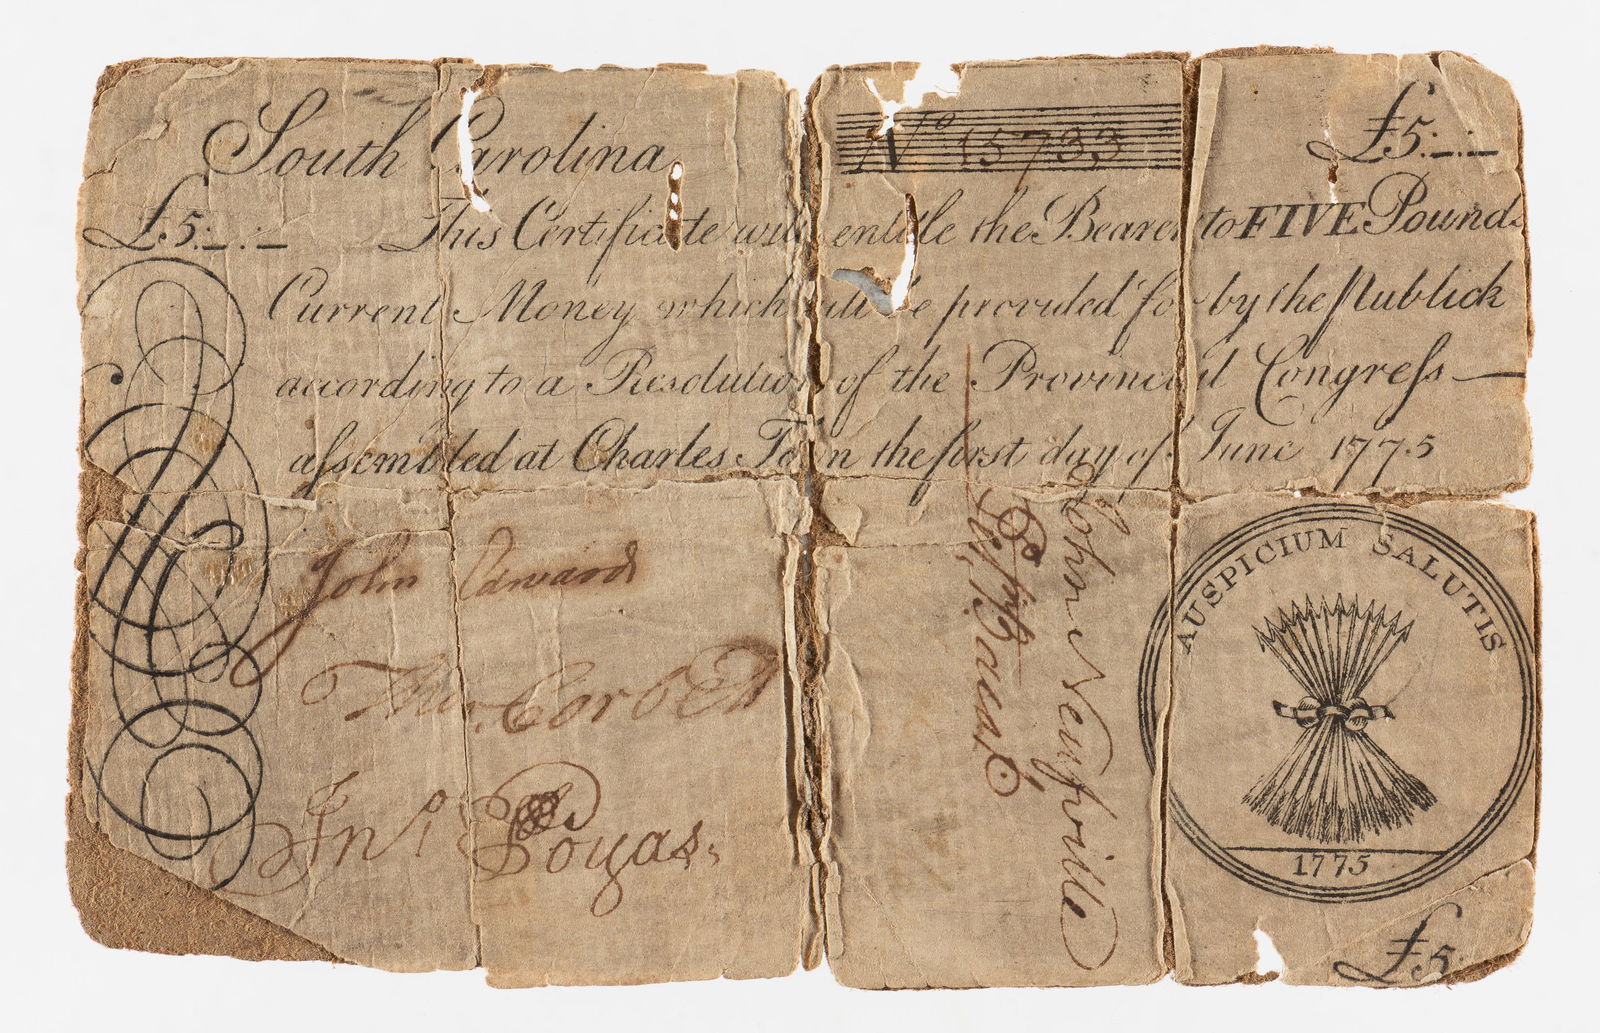 South Carolina
Nº 15733
£5.__.__
£5.__.__ This Certificate will entitle the Bearer to FIVE Pounds
Current Money which will be provided for by the Publick
according to a Resolution of the Provincial Congreſs
aſsembled at Charles Town the firſt day of June 1775
John Edwards
Thoˢ. Corbett
Jnº. Poyas
John Neufville
AUSPICIUM SALUTIS
1775
£5.